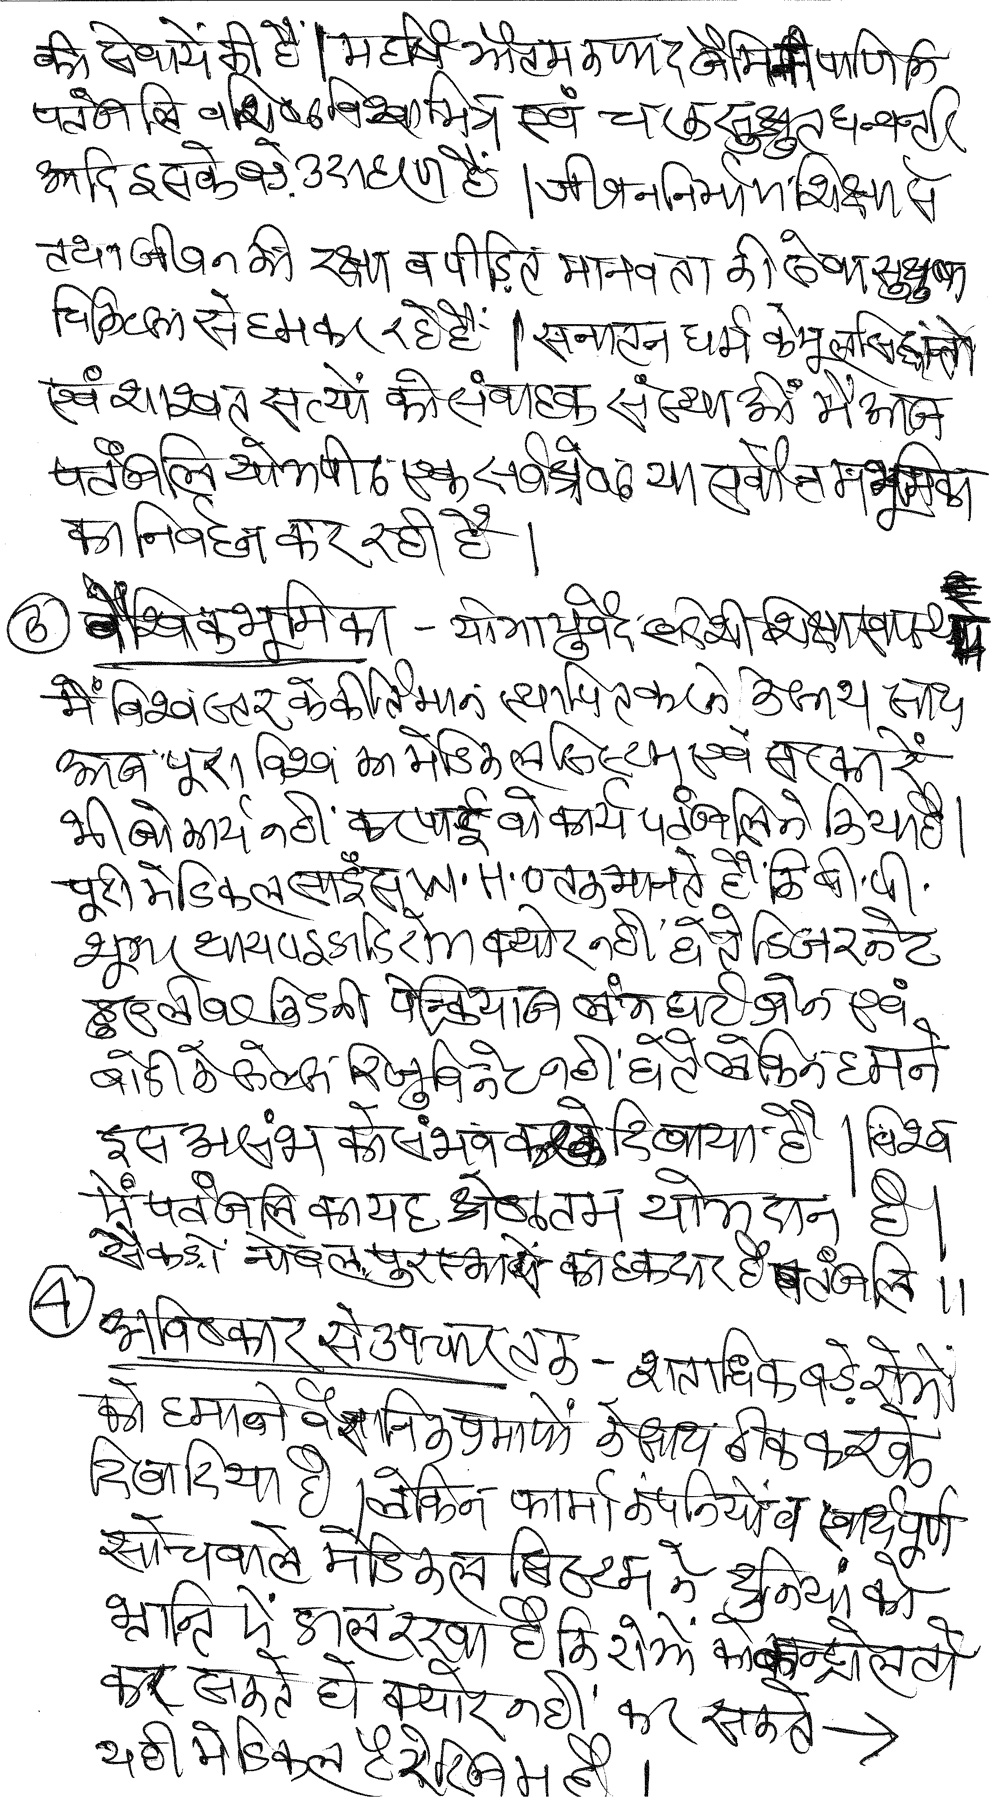 की सेवायें की हैं। महर्षि गौतम कणाद जैमिनी पाणिनि
पतंजलि वशिष्ठ विश्वामित्र एवं चरक सुश्रुत धन्वन्तरि
आदि इसके बड़े उदाहरण हैं। जीवन निर्माण शिक्षा से
तथा जीवन की रक्षा व पीड़ित मानवता की सेवा सुश्रुषा
चिकित्सा से हम कर रहे हैं। सनातन धर्म के मूल सिद्धांतो
एवं शाश्वत सत्यों की संवाहक संस्थाओं में आज
पतंजलि योगपीठ एक सर्वश्रेष्ठ या सर्वोत्तम भूमिका
का निर्वहन कर रही है।
वैश्विक भूमिका - योग आयुर्वेद स्वदेशी शिक्षा स्वास्थ्य
में विश्व स्तर के कीर्तिमान स्थापित करने के साथ साथ
आज पूरा विश्व का मेडिकल सिस्टम एवं सरकारें
भी जो कार्य नहीं कर पाई वो कार्य पतंजलि ने किया है।
पूरी मेडिकल साइंस W.H.O तक मानते हैं कि बी.पी.
शूगर थायराइड आदि रोग क्योर नहीं होते डिजरनेट
हुए लीवर किडनी पेन्क्रियाज लंग हार्ट ब्रेन एवं
बॉडी के सेल्स रिजुविनेट नहीं होते लेकिन हमने
इस असंभ को संभव करके दिखाया है। विश्व
में पतंजलि का यह श्रेष्ठतम योगदान है।
सैकड़ों नोबेल पुरस्कारों का हकदार है पतंजलि॥
4 अविष्कार से उपचार तक - शताधिक बड़े रोगों
को हमने वैज्ञानिक प्रमाणों के साथ ठीक करके
दिखा दिया है। लेकिन फार्मा कंपनियों व स्वार्थपूर्ण
सोच वाले मेडिकल सिस्टम ने दुनियां को
भ्रान्ति में डाल रखा है कि रोगों को कन्ट्रोल तो
कर सकते हो क्योर नहीं कर सकते →
यही मेडिकल टेरेरिजम है।